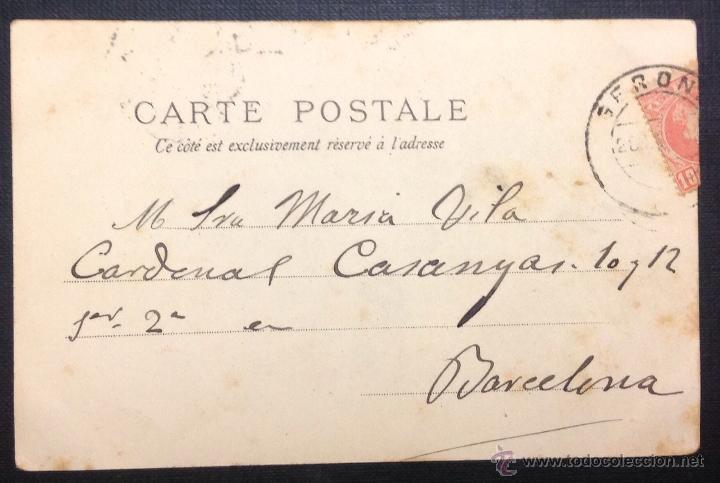 GERON
CARTE POSTALE
Ce côté est exclusivement réservé à l'adresse
M Sra Maria Vila
Cardenal Casanyas. 10 y 12
1er 2a en
Barcelona
todocoleccion
www.todocoleccion.net